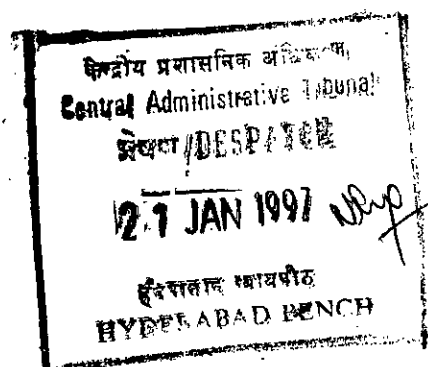 केन्द्रीय प्रशासनिक अधिकरण
Central Administrative Tribunal
प्रेषण/DESPATCH
21 JAN 1997
हैदराबाद न्यायपीठ
HYDERABAD BENCH